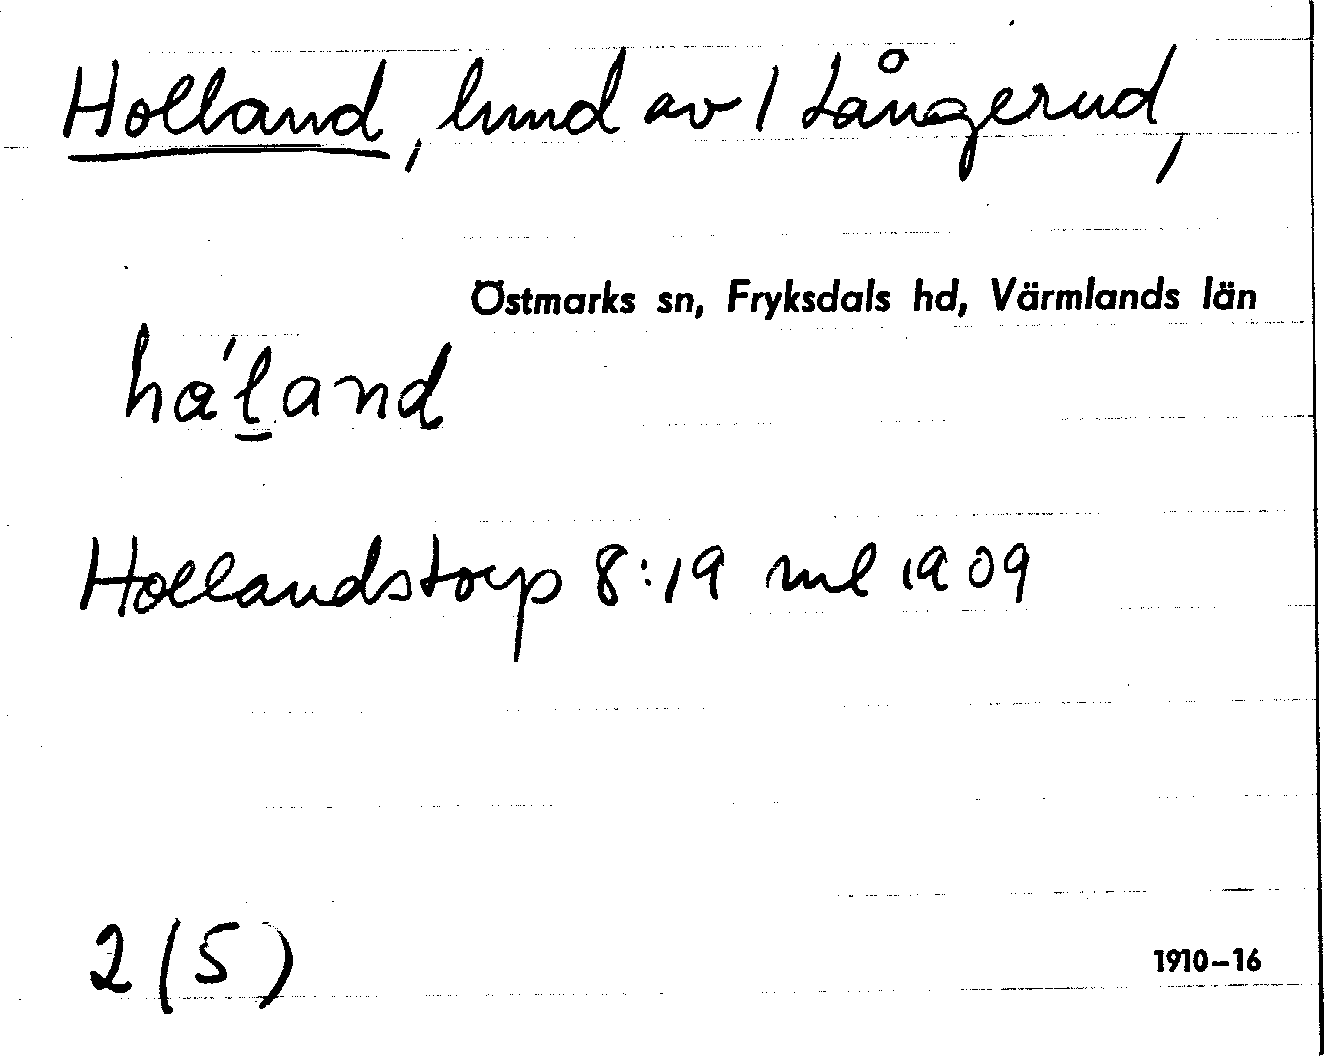 Holland, lund av 1 Långerud,
Östmarks sn, Fryksdals hd, Värmlands län
hα'l̲and
Hollandstorp 8:19 ml 1909
2 (5)
1910–16